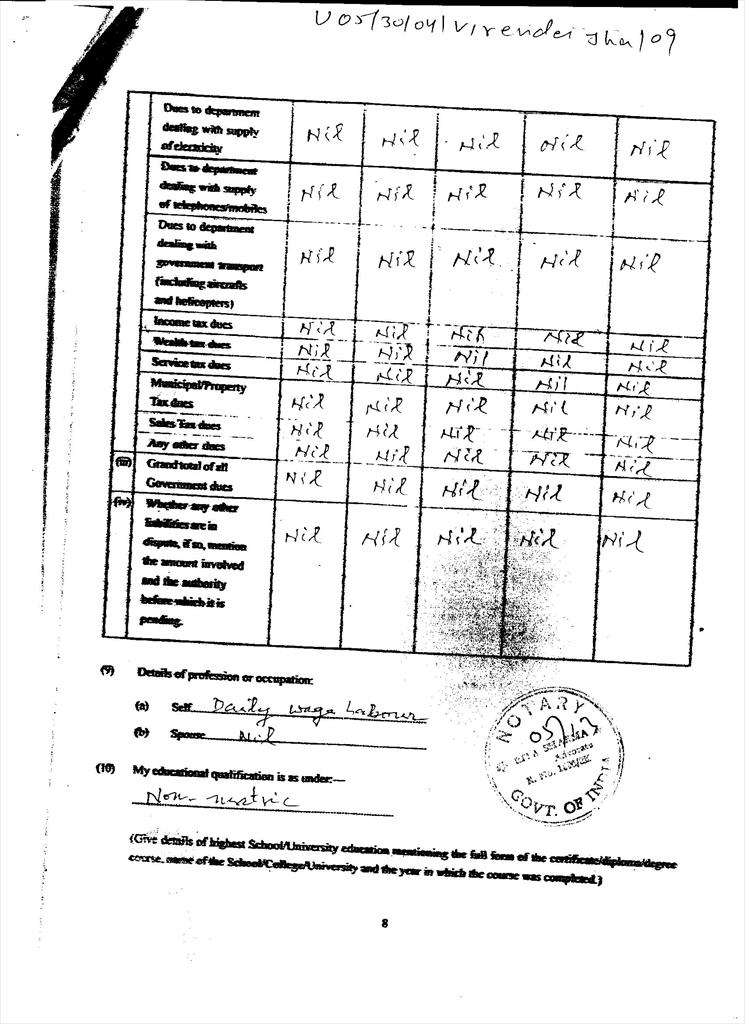 U05/30/04/Virender Jha/09
Dues to department
dealing with supply
of electricity
Nil Nil Nil Nil Nil
Dues to department
dealing with supply
of telephones/mobiles
Nil Nil Nil Nil Nil
Dues to department
dealing with
government transport
(including aircrafts
and helicopters)
Nil Nil Nil Nil Nil
Income tax dues Nil Nil Nil Nil Nil
Wealth tax dues Nil Nil Nil Nil Nil
Service tax dues Nil Nil Nil Nil Nil
Municipal/Property
Tax dues Nil Nil Nil Nil Nil
Sales Tax dues Nil Nil Nil Nil Nil
Any other dues Nil Nil Nil Nil Nil
(iii) Grand total of all
Government dues Nil Nil Nil Nil Nil
(iv) Whether any other
liabilities are in
dispute, if so, mention
the amount involved
and the authority
before which it is
pending.
Nil Nil Nil Nil Nil
(9) Details of profession or occupation:
(a) Self Daily wage Labour
(b) Spouse Nil
(10) My educational qualification is as under:—
Non-metric
NOTARY
SHARMA
Advocate
R. No.
GOVT. OF INDIA
(Give details of highest School/University education mentioning the full form of the certificate/diploma/degree
course, name of the School/College/University and the year in which the course was completed.)
8